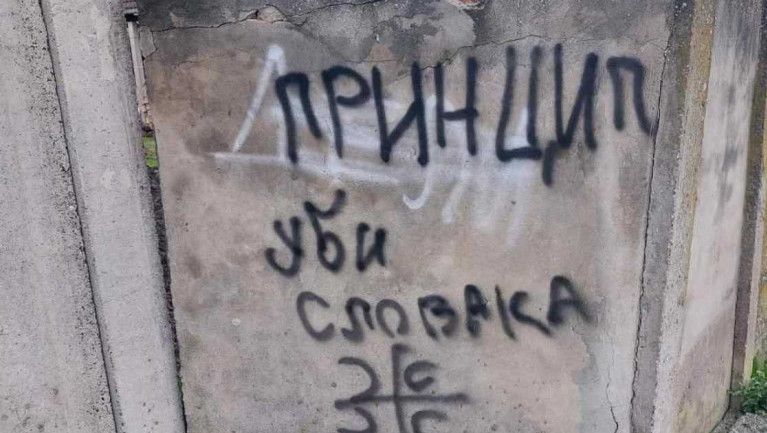 ПРИНЦИП
уби
СЛОВАКА